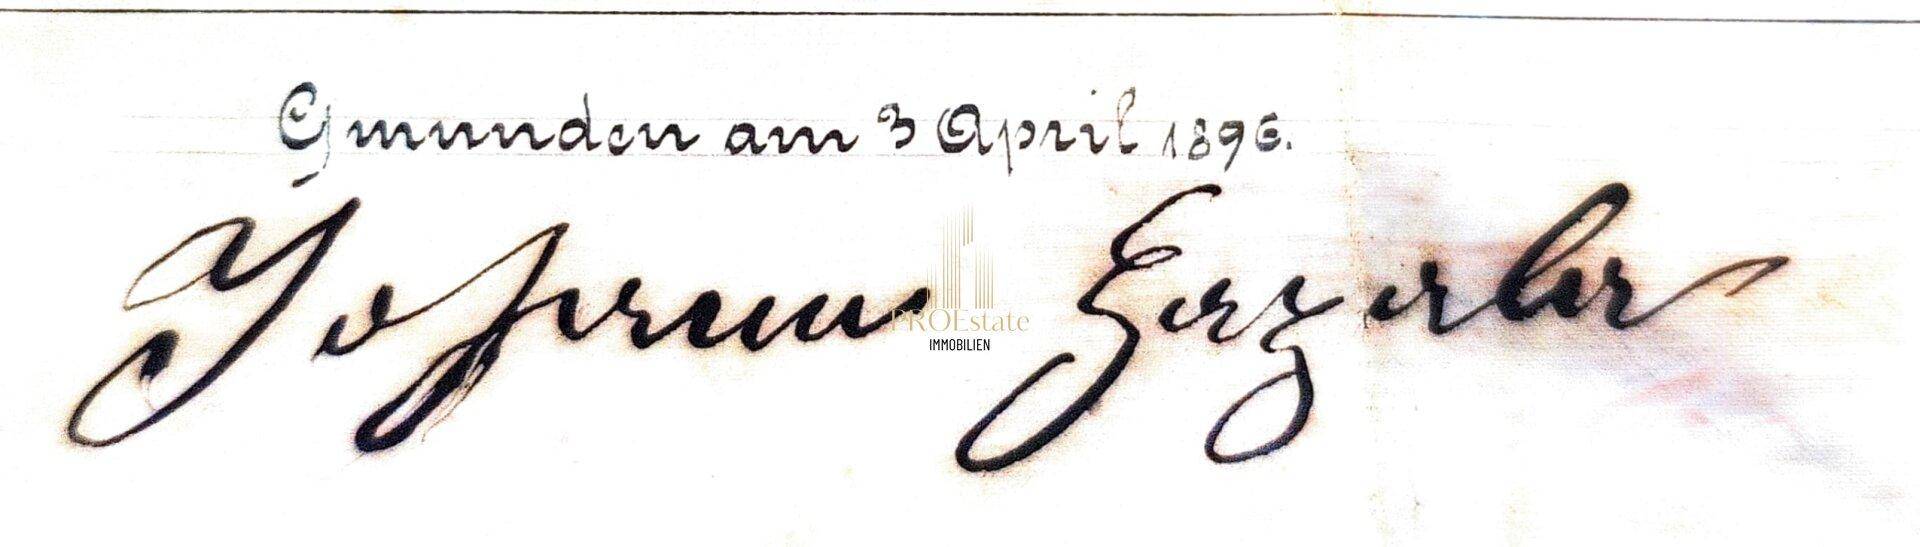 Gmunden am 3 April 1896.
Johann
PROEstate
IMMOBILIEN